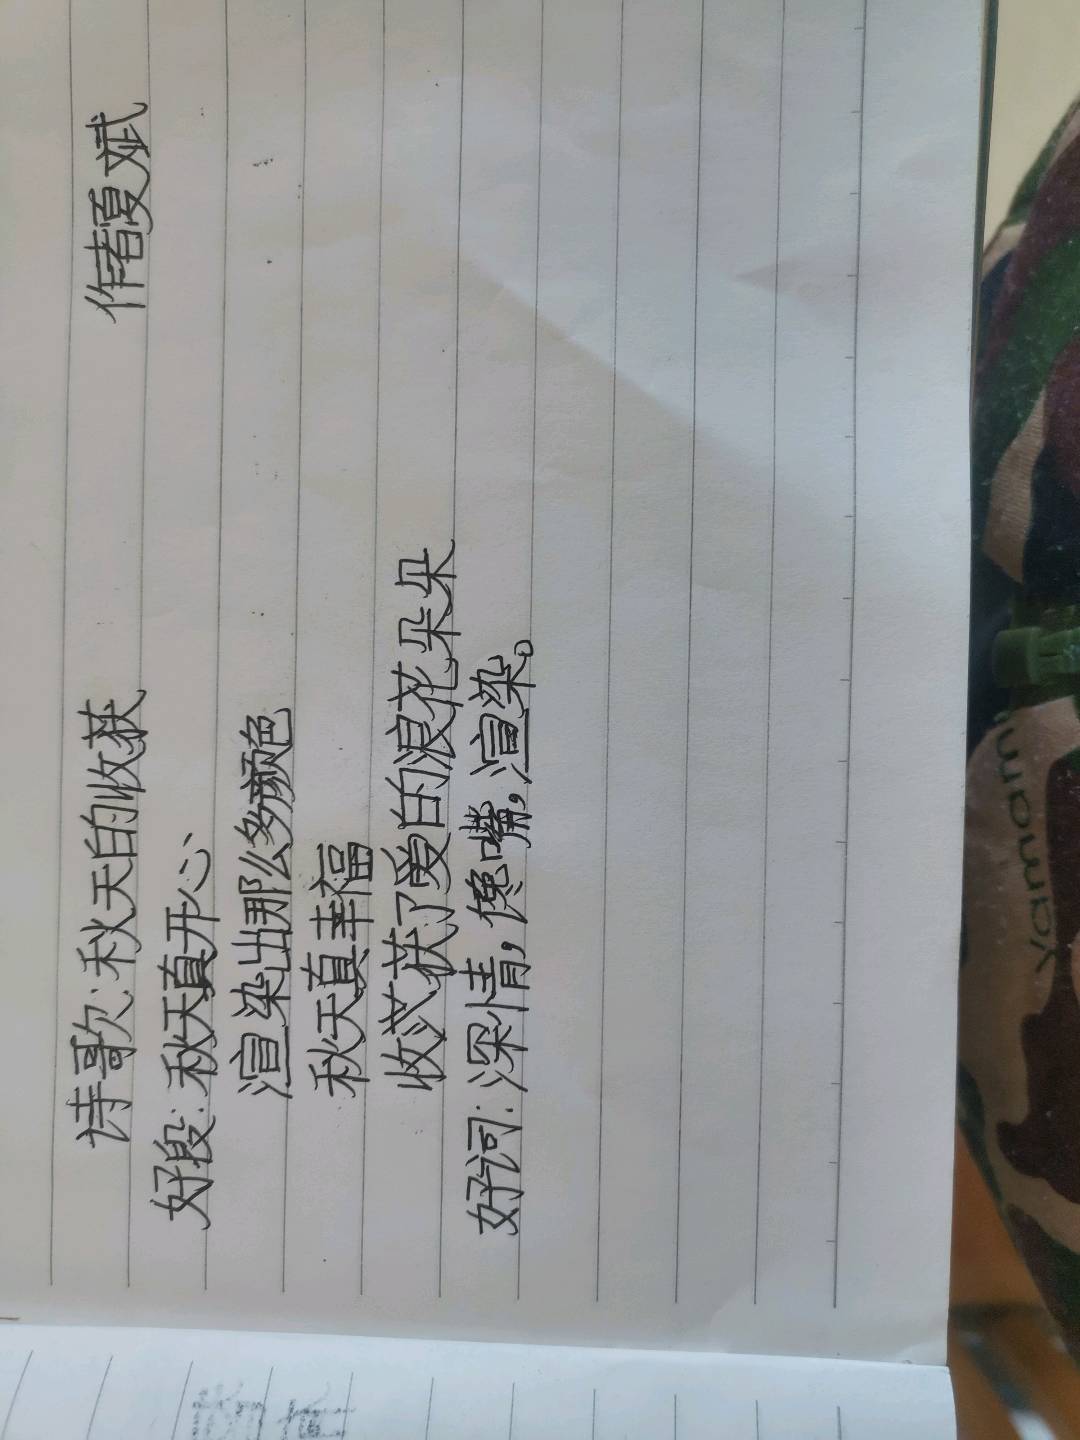 诗歌:秋天的收获 作者夏斌
好段:秋天真开心
渲染出那么多颜色
秋天真幸福
收获了爱的浪花朵朵
好词:深情,馋嘴,渲染。